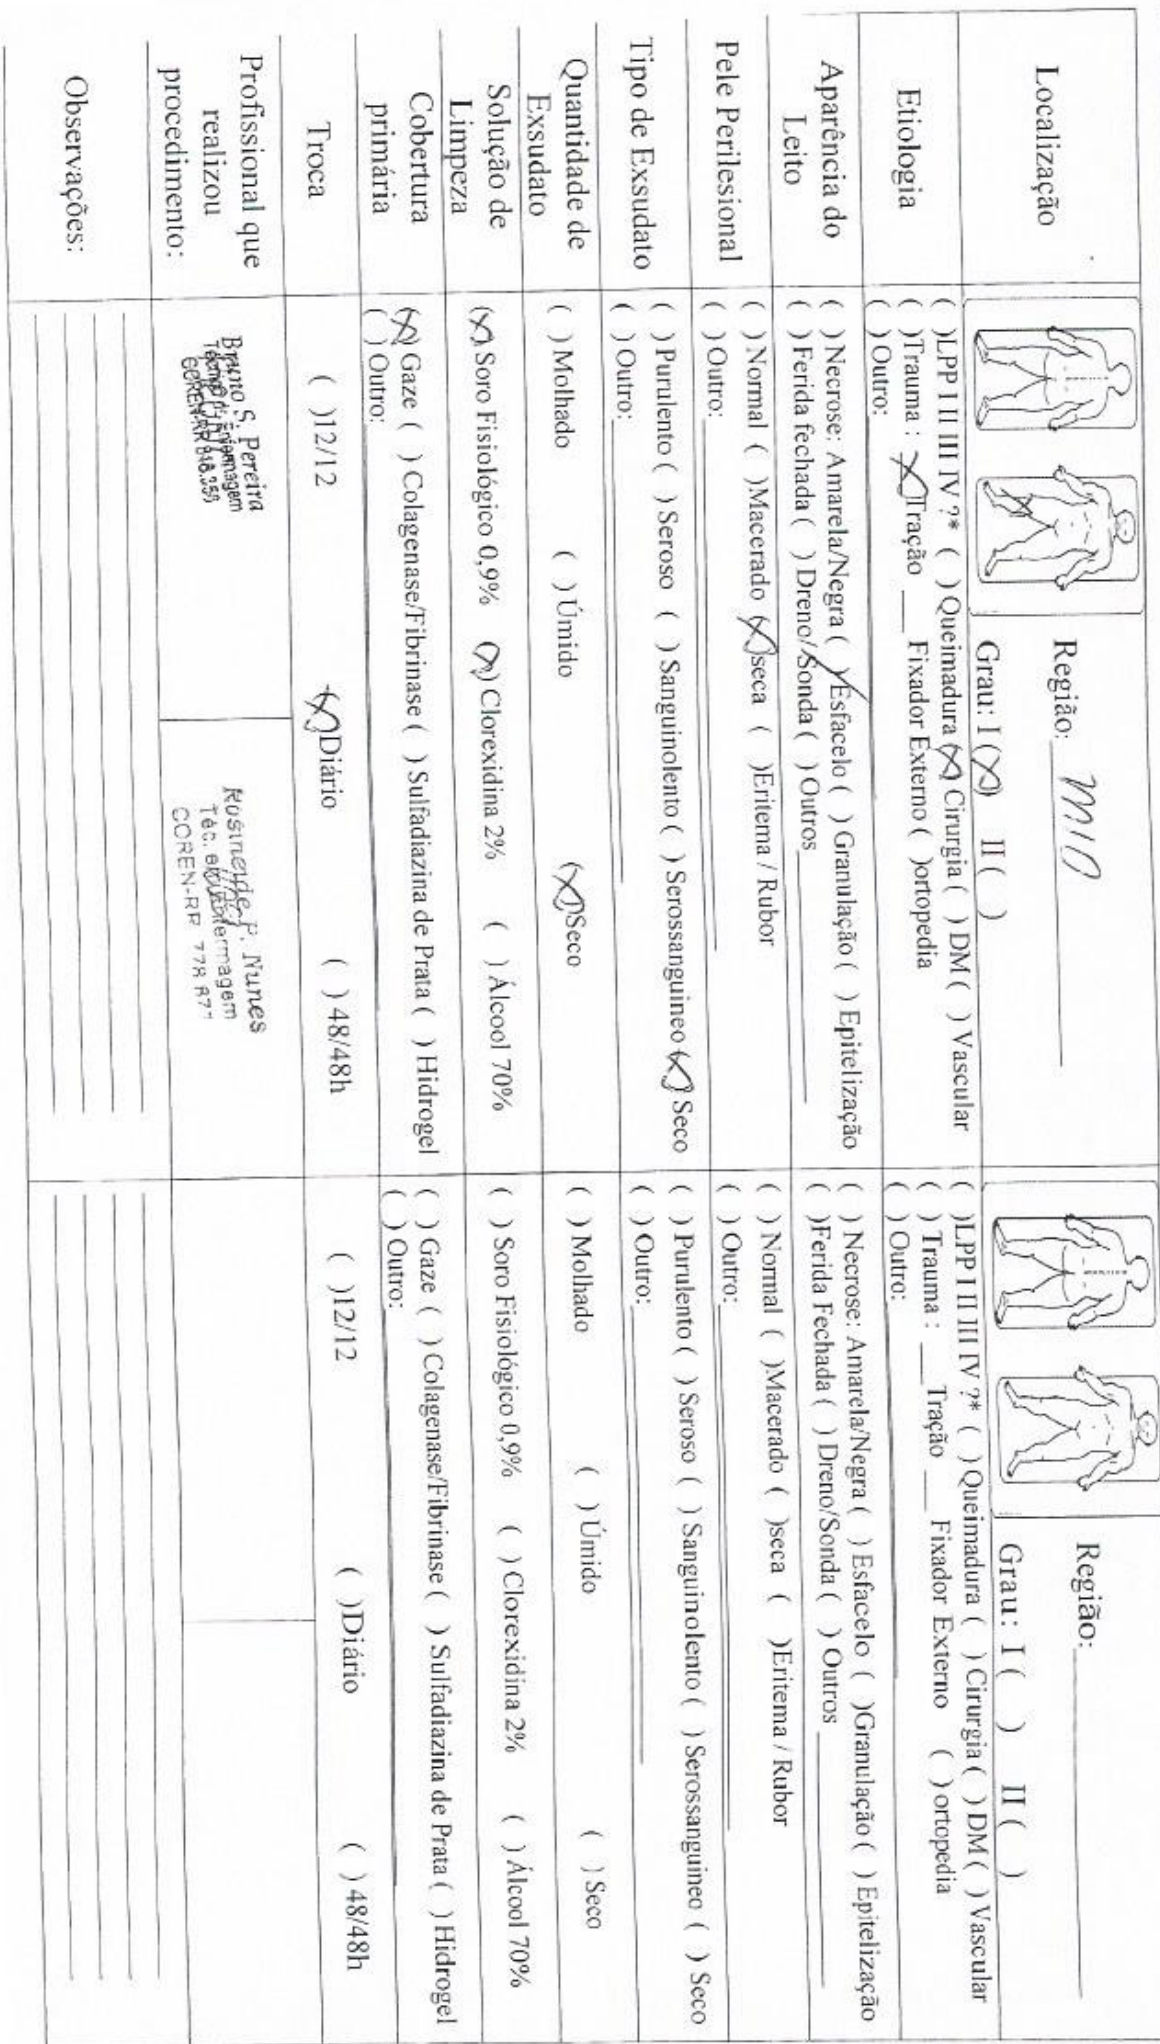 Localização
Região: MID
Grau: I (X) II ( )
Região:
Grau: I ( ) II ( )
Etiologia
( )LPP I II III IV ?* ( ) Queimadura (X) Cirurgia ( ) DM ( ) Vascular
( )Trauma : X Tração ___ Fixador Externo ( )ortopedia
( ) Outro:
( )LPP I II III IV ?* ( ) Queimadura ( ) Cirurgia ( ) DM ( ) Vascular
( ) Trauma : ___ Tração ___ Fixador Externo ( ) ortopedia
( ) Outro:
Aparência do
Leito
( ) Necrose: Amarela/Negra ( ) Esfacelo ( ) Granulação ( ) Epitelização
( ) Ferida fechada ( ) Dreno/Sonda ( ) Outros
( ) Necrose: Amarela/Negra ( ) Esfacelo ( )Granulação ( ) Epitelização
( )Ferida Fechada ( ) Dreno/Sonda ( ) Outros
Pele Perilesional
( ) Normal ( )Macerado (X)seca ( )Eritema / Rubor
( ) Outro:
( ) Normal ( )Macerado ( )seca ( )Eritema / Rubor
( ) Outro:
Tipo de Exsudato
( ) Purulento ( ) Seroso ( ) Sanguinolento ( ) Serossanguineo (X) Seco
( ) Outro:
( ) Purulento ( ) Seroso ( ) Sanguinolento ( ) Serossanguineo ( ) Seco
( ) Outro:
Quantidade de
Exsudato
( ) Molhado ( ) Úmido (X)Seco
( ) Molhado ( ) Úmido ( ) Seco
Solução de
Limpeza
(X) Soro Fisiológico 0,9% (X) Clorexidina 2% ( ) Álcool 70%
( ) Soro Fisiológico 0,9% ( ) Clorexidina 2% ( ) Álcool 70%
Cobertura
primária
(X) Gaze ( ) Colagenase/Fibrinase ( ) Sulfadiazina de Prata ( ) Hidrogel
( ) Outro:
( ) Gaze ( ) Colagenase/Fibrinase ( ) Sulfadiazina de Prata ( ) Hidrogel
( ) Outro:
Troca
( )12/12 (X)Diário ( ) 48/48h
( )12/12 ( )Diário ( ) 48/48h
Profissional que
realizou
procedimento:
Bruno S. Pereira
COREN-RR
P. Nunes
Téc.
COREN-RR 778
Observações: